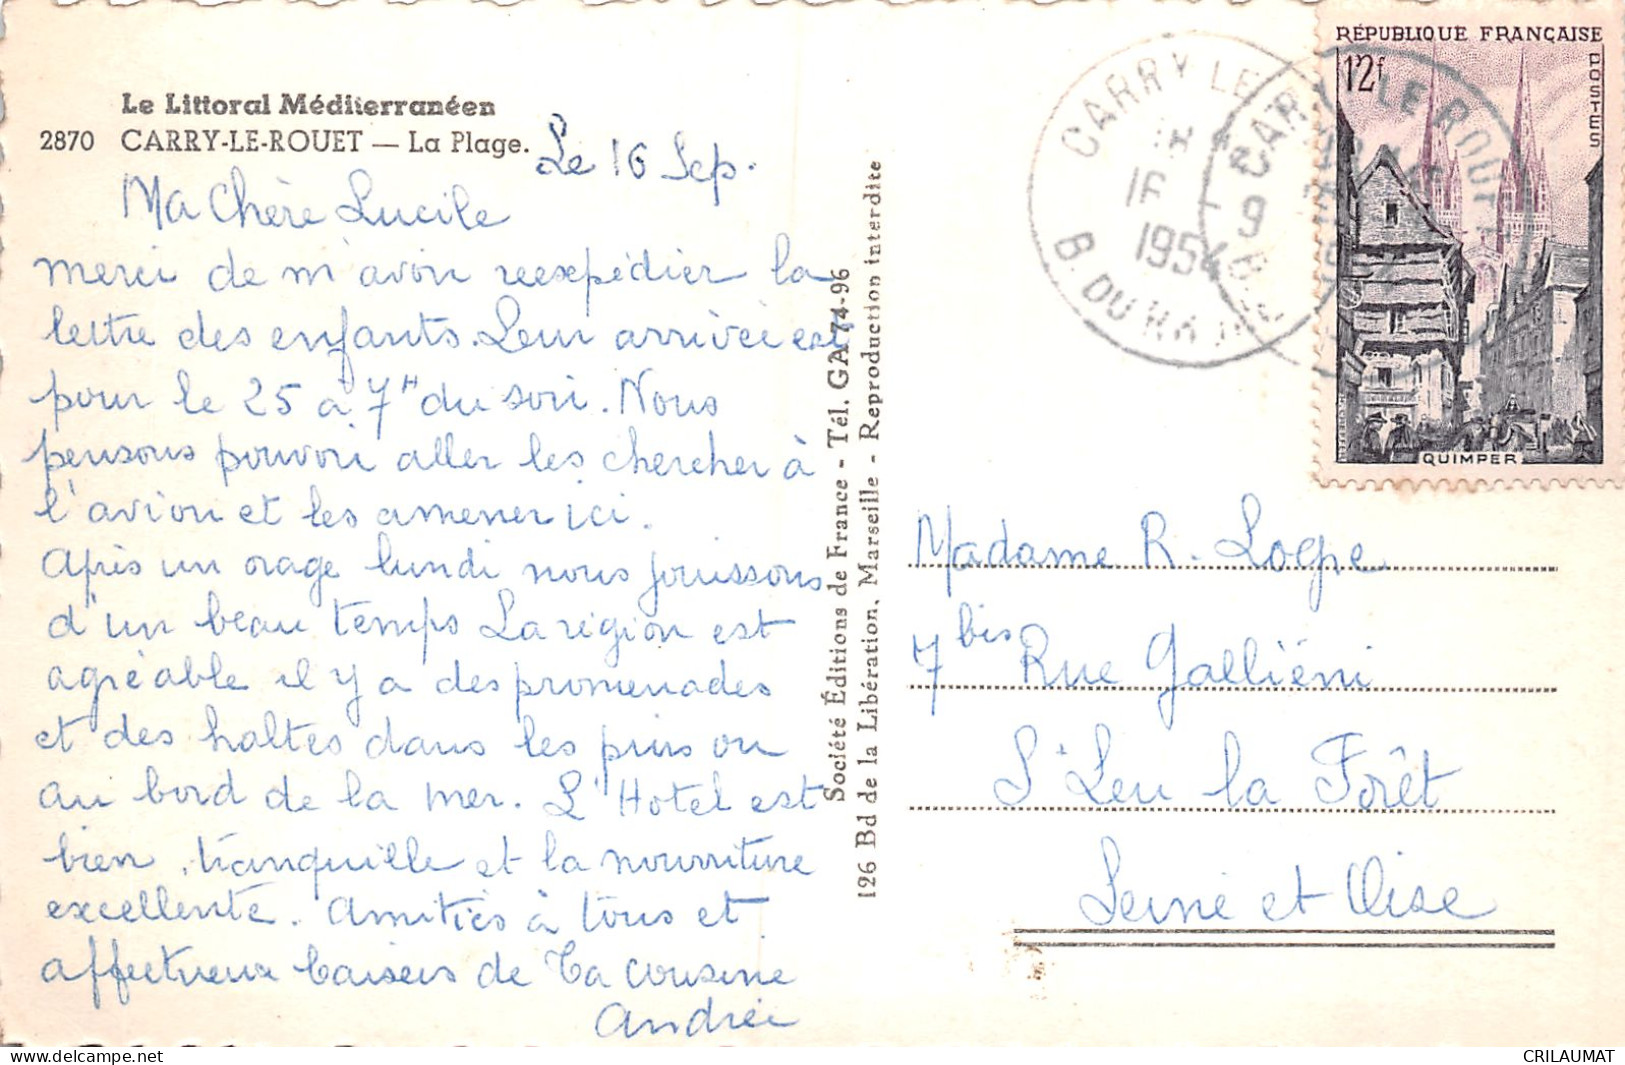 Le Littoral Méditerranéen
2870 CARRY-LE-ROUET — La Plage.
Le 16 Sep.
Ma Chère Lucile
merci de m'avoir reexpédier la
lettre des enfants. Leur arrivée est
pour le 25 à 7H du soir. Nous
pensons pouvoir aller les chercher à
l'avion et les amener ici.
Après un orage lundi nous jouissons
d'un beau temps La région est
agréable il y a des promenades
et des haltes dans les pins ou
au bord de la mer. L'Hotel est
bien, tranquille et la nourriture
excellente. Amitiés à tous et
affectueux baisers de Ta cousine
Andrée
Société Éditions de France - Tél. GA 74-96
126 Bd de la Libération, Marseille - Reproduction interdite
CARRY LE
16 9
1954
B. DU RH
CARRY LE ROUET
RÉPUBLIQUE FRANÇAISE
POSTES
12f
QUIMPER
Madame R. Logre
7 bis Rue Galliéni
St Leu la Forêt
Seine et Oise
delcampe.net
CRILAUMAT